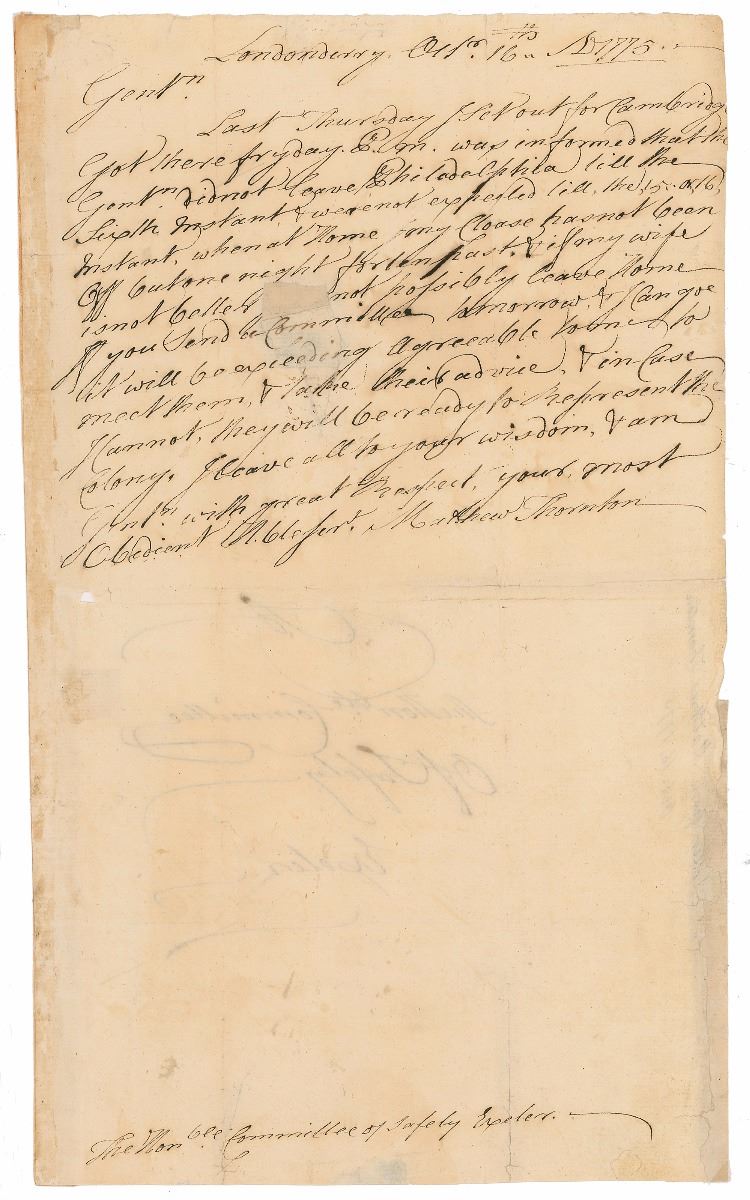 Londonderry. Octr. 16th AD 1775.
Gentn
Last Thursday I Set out for Cambridge
Got there fryday. P. m. was informed that the
Gentn. did not leave Philadelphia till the
Sixth Instant & were not expected till the 15. or 16
Instant. when at Home my Cloase has not been
Off but one night for ten past. & if my wife
is not better not possibly leave Home
If you Send a Committee tomorrow & I can goe
it will be exceeding Agreeable to me to
meet them, & take their advice, & in Case
I cannot, they will be ready to Represent the
Colony. I leave all to your wisdom, & am
Gentn. with great Respect, your most
Obedient Hble Servt. Matthew Thornton
To
the Honble Committee
Of Safety
Exeter
The Honble. Committee of Safety Exeter.